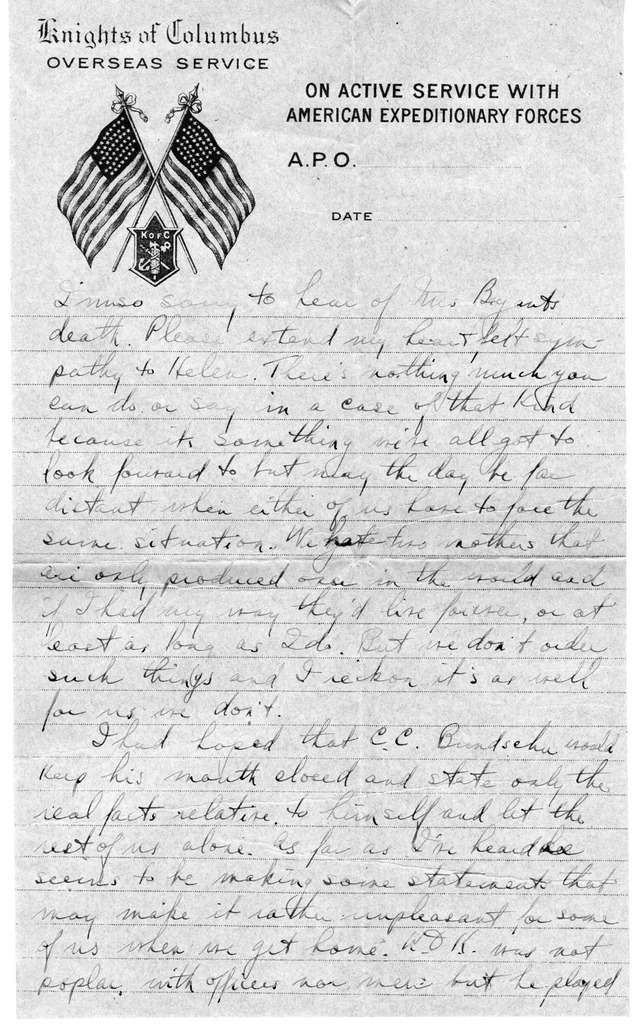 Knights of Columbus
OVERSEAS SERVICE
ON ACTIVE SERVICE WITH
AMERICAN EXPEDITIONARY FORCES
A.P.O.
DATE
K of C
I'm so sorry to hear of Mrs Bryants
death. Please extend my heartfelt sym-
pathy to Helen. There's nothing much you
can do or say in a case of that kind
because its something we're all got to
look forward to but may the day be far
distant when either of us have to face the
same situation. We have two mothers that
are only produced once in the world and
if I had my way they'd live forever, or at
least as long as I do. But we don't order
such things and I reckon it's as well
for us we don't.
I had hoped that C.C. Bundschu would
keep his mouth closed and state only the
real facts relative to himself and let the
rest of us alone. As far as I've heard he
seems to be making some statements that
may make it rather unpleasant for some
of us when we get home. K.D.K. was not
poplar with officers nor men but he played